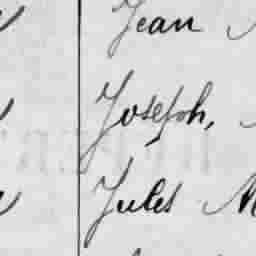 Jean
Joseph,
Jules M